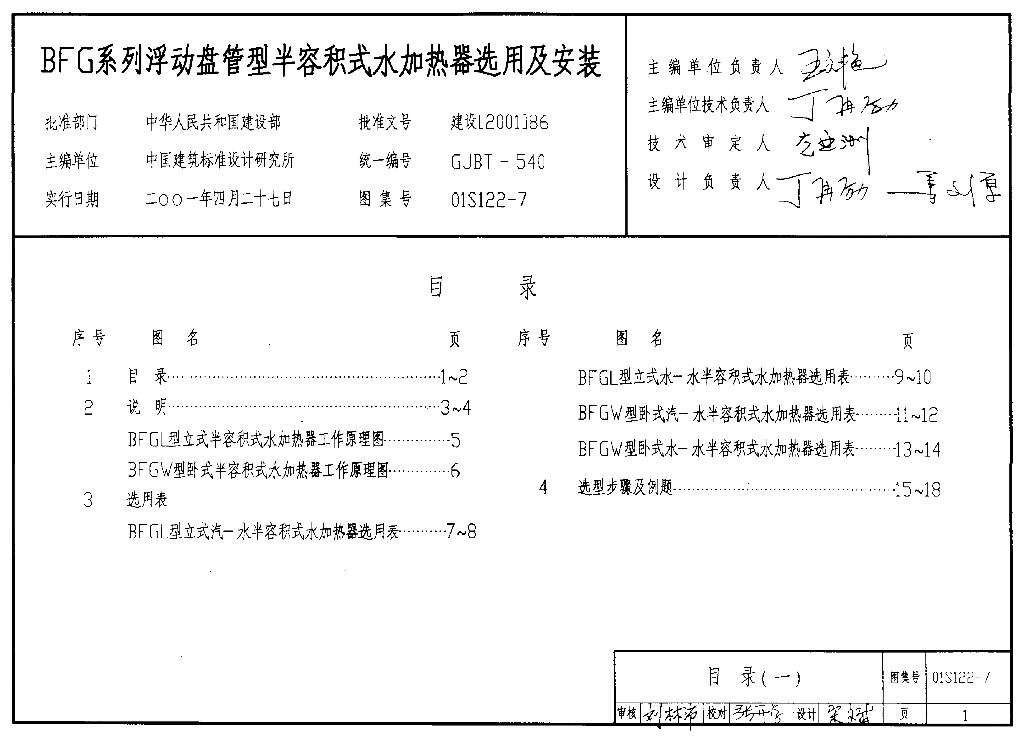 BFG系列浮动盘管型半容积式水加热器选用及安装
批准部门 中华人民共和国建设部 批准文号 建设[2001]86
主编单位 中国建筑标准设计研究所 统一编号 GJBT-540
实行日期 二〇〇一年四月二十七日 图集号 01S122-7
主编单位负责人
主编单位技术负责人 丁再励
技术审定人
设计负责人 丁再励
目 录
序号 图名 页
1 目录 1~2
2 说明 3~4
BFGL型立式半容积式水加热器工作原理图 5
BFGW型卧式半容积式水加热器工作原理图 6
3 选用表
BFGL型立式汽一水半容积式水加热器选用表 7~8
序号 图名 页
BFGL型立式水一水半容积式水加热器选用表 9~10
BFGW型卧式汽一水半容积式水加热器选用表 11~12
BFGW型卧式水一水半容积式水加热器选用表 13~14
4 选型步骤及例题 15~18
目 录(一) 图集号 01S122-7
审核 校对 设计 页 1